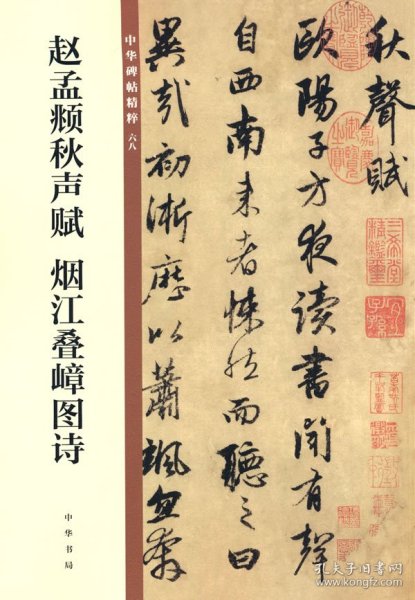 赵孟頫秋声赋 烟江叠嶂图诗
中华书局
中华碑帖精粹 六八
秋聲賦
歐陽子方夜读書闻有聲
自西南来者悚然而聽之曰
異哉初淅瀝以蕭颯忽奔
三希堂精鑑璽
宜子孫
孔夫子旧书网
www.kongfz.com